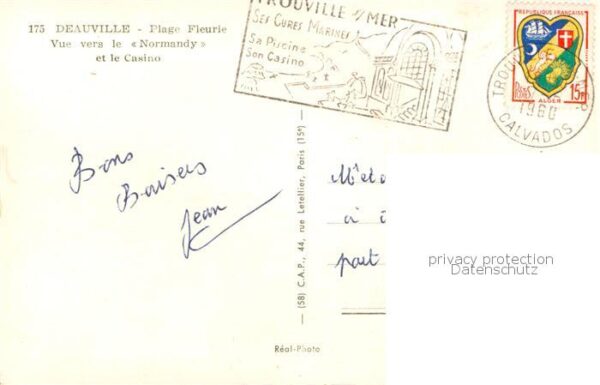 175 DEAUVILLE - Plage Fleurie
Vue vers le « Normandy »
et le Casino
TROUVILLE S/MER
SES CURES MARINES
Sa Piscine
Son Casino
REPUBLIQUE FRANÇAISE
POSTES
15F
ALGER
TROUVILLE
1960
CALVADOS
Bons
Baisers
Jean
(58) C.A.P., 44, rue Letellier, Paris (15e)
Réal-Photo
à
part
privacy protection
Datenschutz